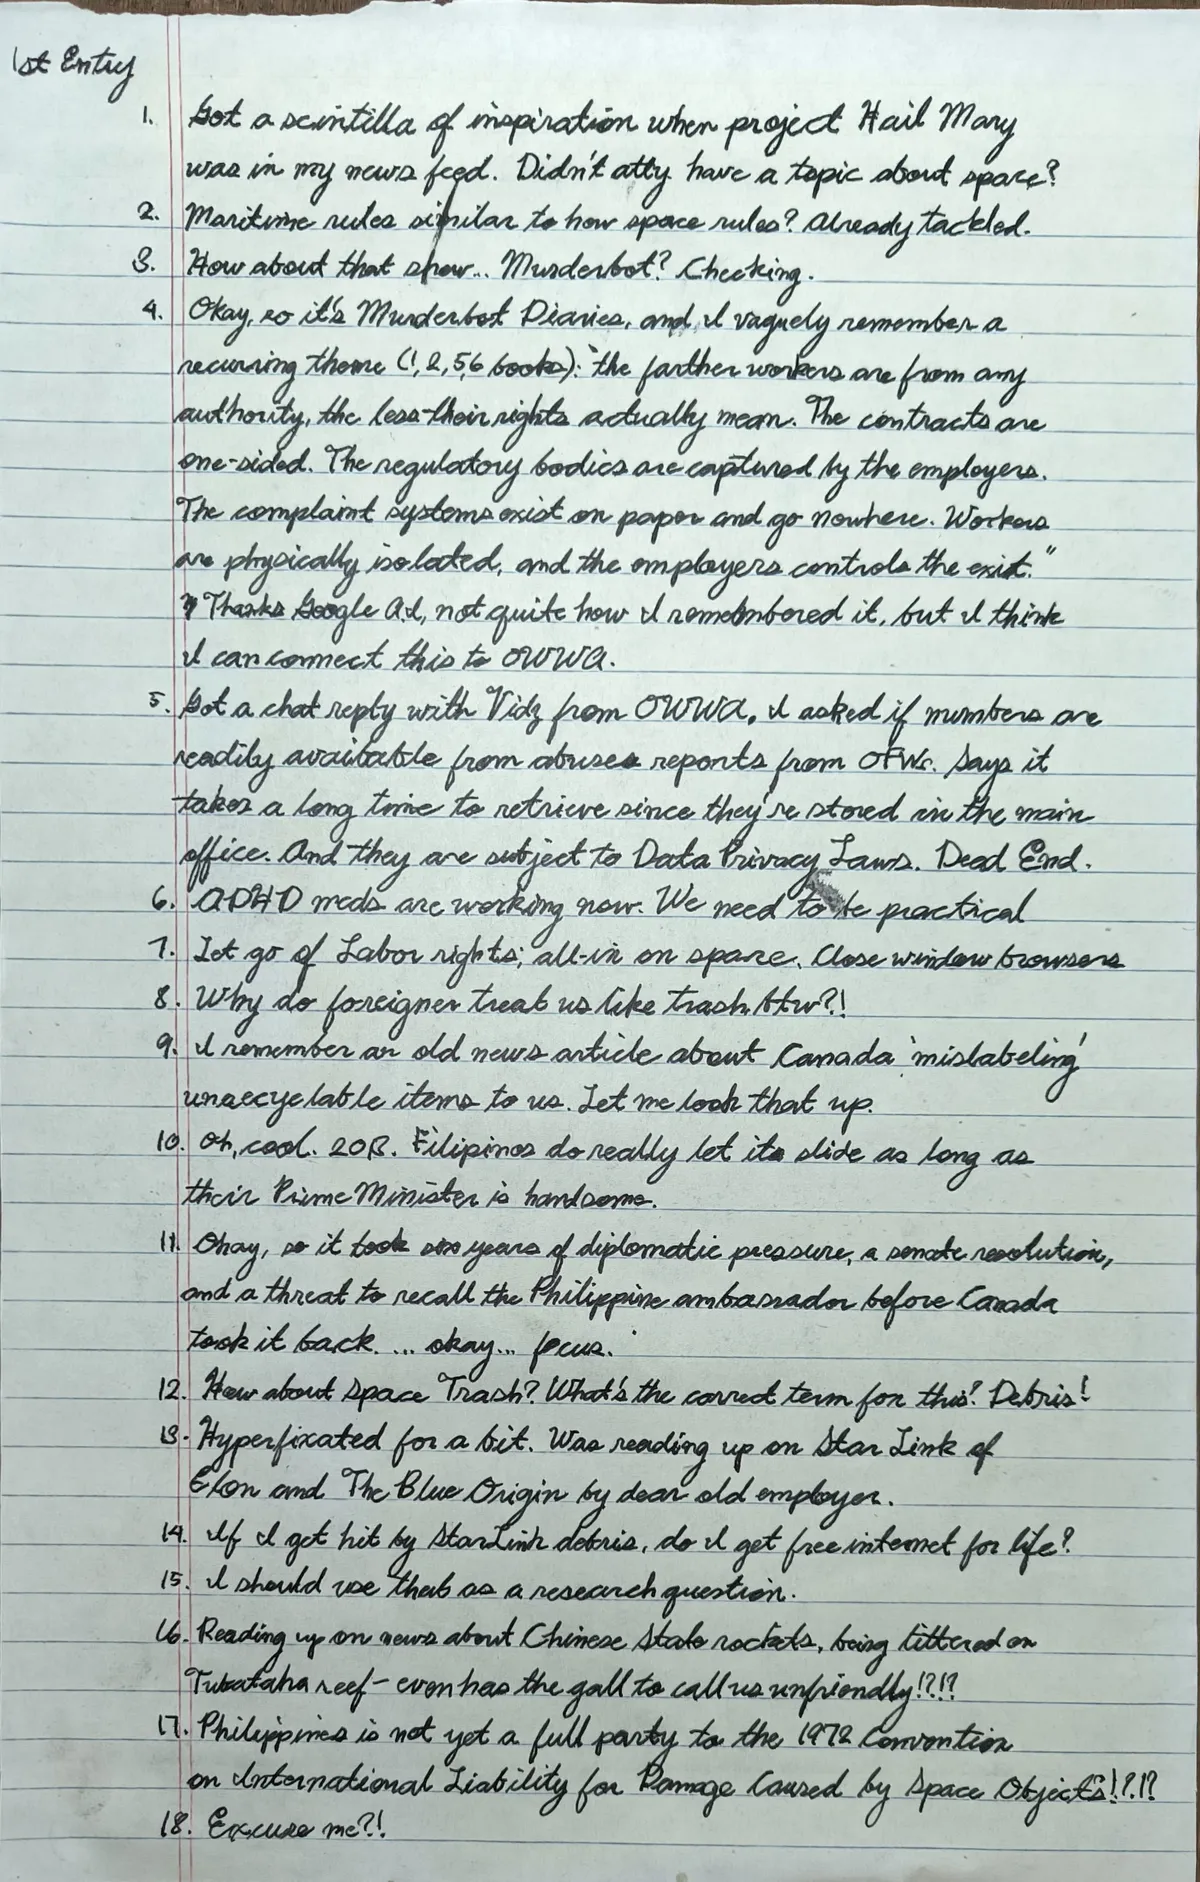 1st Entry
1. Got a scintilla of inspiration when project Hail Mary
was in my news feed. Didn't atty have a topic about space?
2. Maritime rules similar to how space rules? Already tackled.
3. How about that show... Murderbot? Checking.
4. Okay, so it's Murderbot Diaries, and I vaguely remember a
recurring theme (1, 2, 5, 6 books): "the farther workers are from any
authority, the less their rights actually mean. The contracts are
one-sided. The regulatory bodies are captured by the employers.
The complaint systems exist on paper and go nowhere. Workers
are physically isolated, and the employers controls the exit."
Thanks Google A.I, not quite how I remembered it, but I think
I can connect this to OWWA.
5. Got a chat reply with Vidz from OWWA, I asked if numbers are
readily available from abuses reports from OFWs. Says it
takes a long time to retrieve since they're stored in the main
office. And they are subject to Data Privacy Laws. Dead End.
6. ADHD meds are working now. We need to be practical
7. Let go of Labor rights; all-in on space. Close window browsers
8. Why do foreigner treat us like trash btw?!
9. I remember an old news article about Canada 'mislabeling'
unrecyclable items to us. Let me look that up.
10. Oh, cool. 2013. Filipinos do really let its slide as long as
their Prime Minister is handsome.
11. Okay, so it took six years of diplomatic pressure, a senate resolution,
and a threat to recall the Philippine ambassador before Canada
took it back. ... okay... focus.
12. How about Space Trash? What's the correct term for this? Debris!
13. Hyperfixated for a bit. Was reading up on Star Link of
Elon and The Blue Origin by dear old employer.
14. If I get hit by StarLink debris, do I get free internet for life?
15. I should use that as a research question.
16. Reading up on news about Chinese State rockets, being littered on
Tubataha reef - even has the gall to call us unfriendly!?!?
17. Philippines is not yet a full party to the 1972 Convention
on International Liability for Damage Caused by Space Objects!?!?
18. Excuse me?!